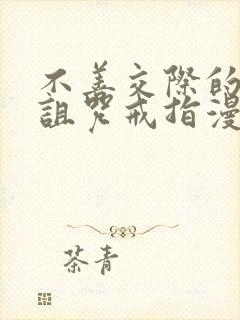 不善交际的
诅咒戒指漫
茶青